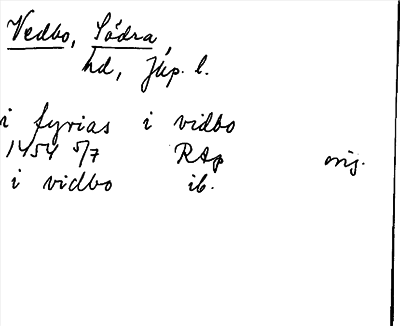 Vedbo, Södra
hd, Jkp. l.
i fyrias i vidbo
1454 5/7 RAp oris.
i vidbo ib.